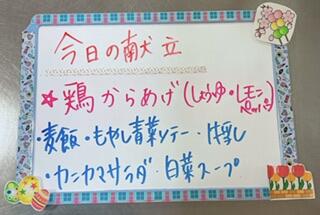 今日の献立
★鶏からあげ(しょうゆ・レモンペッパー)
・麦飯・もやし青菜ソテー・汁
・カニカマサラダ・白菜スープ